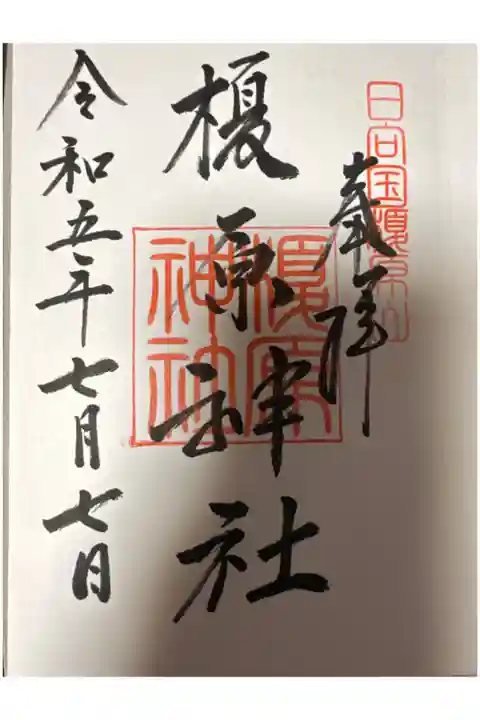 日向国榎原宮
奉拝
榎原神社
榎原神社
令和五年七月七日